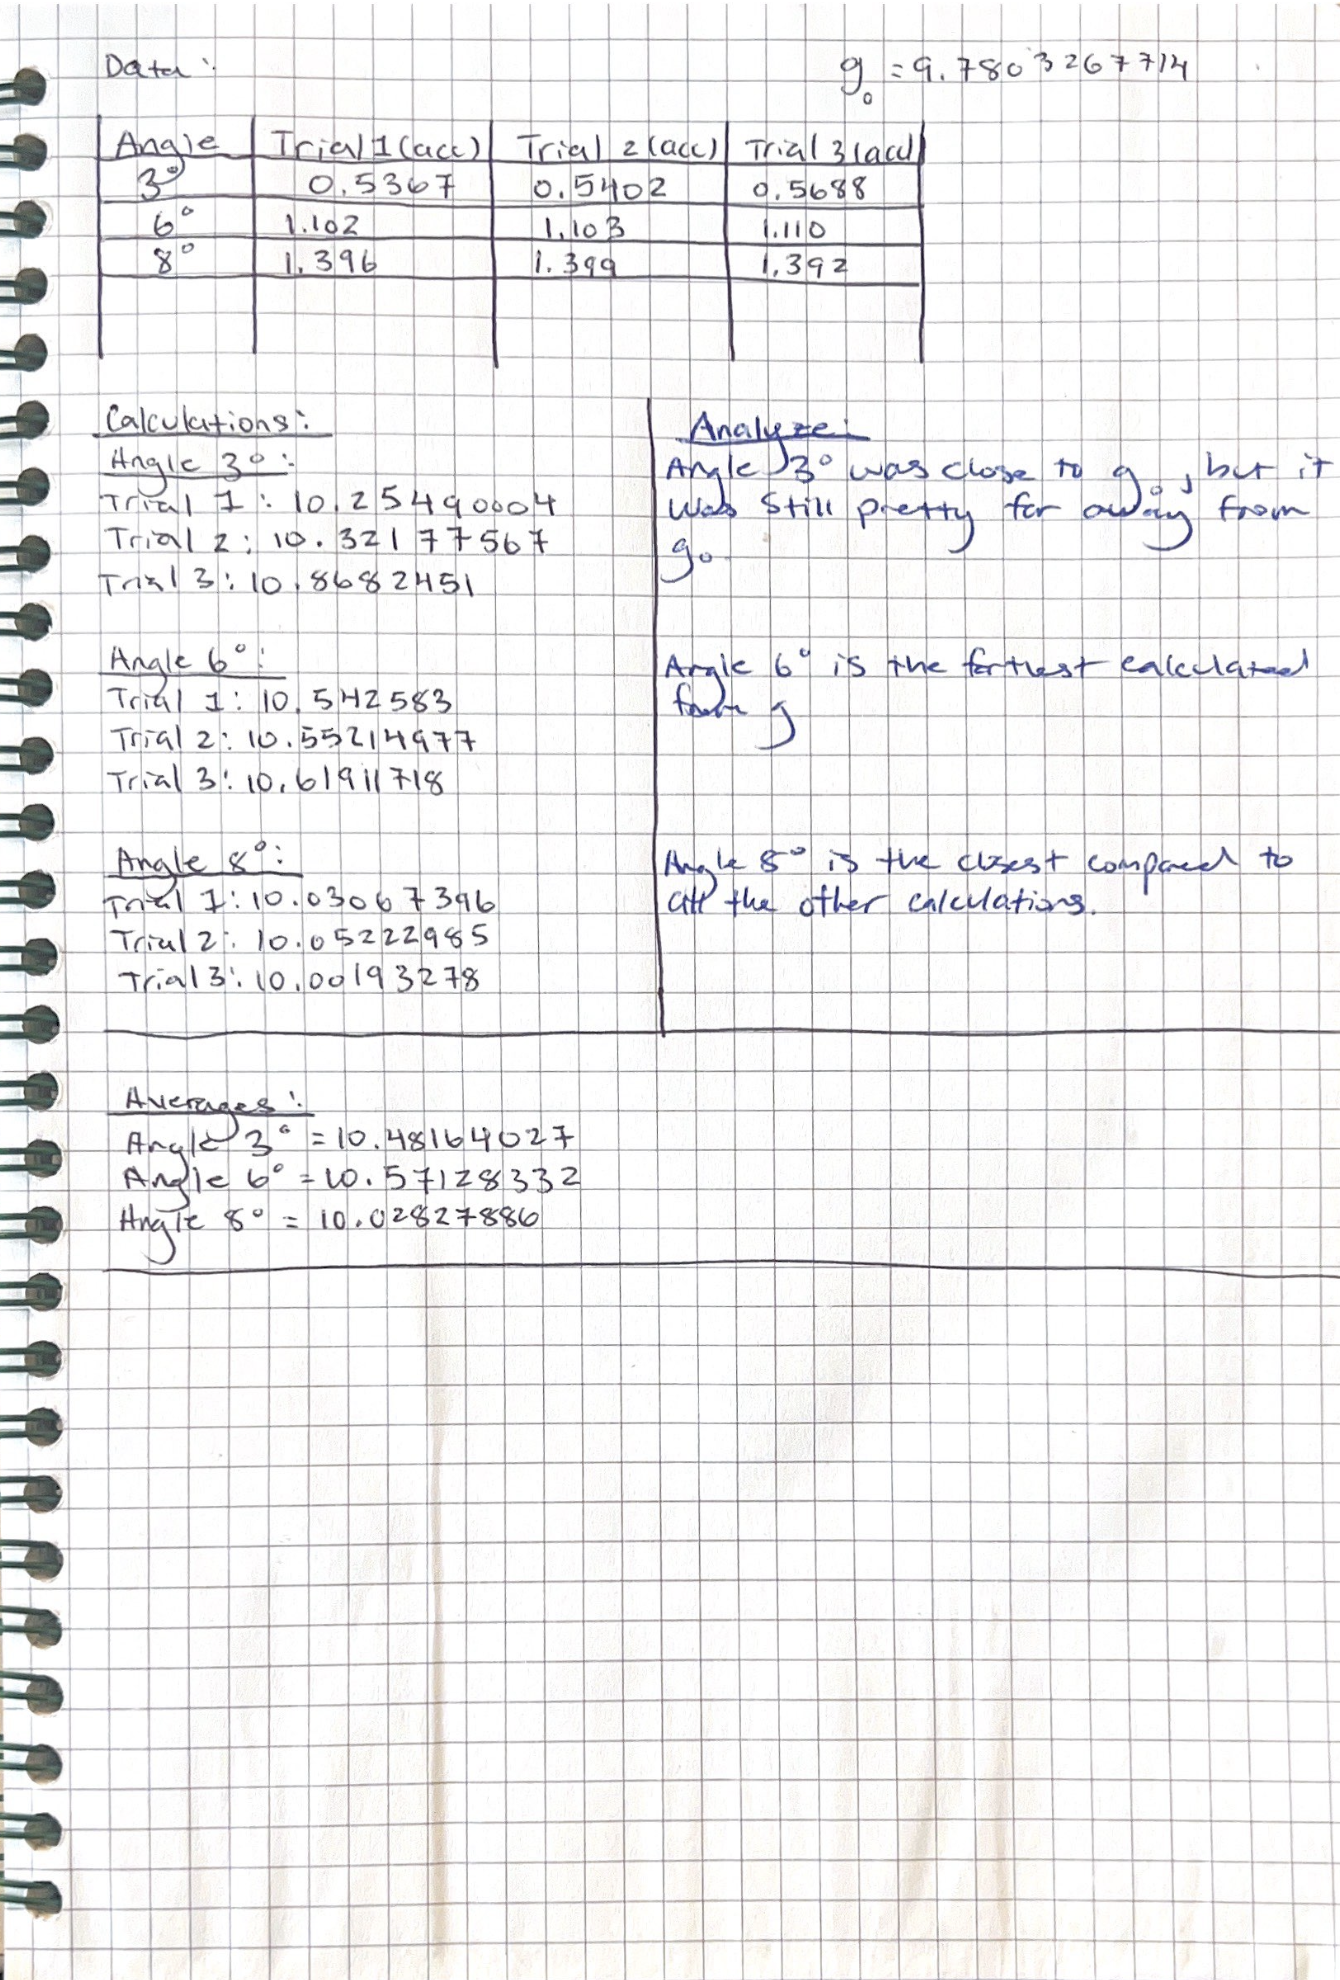 Data:
g₀ = 9.7803267714
Angle Trial 1 (acc) Trial 2 (acc) Trial 3 (acc)
3° 0.5367 0.5402 0.5688
6° 1.102 1.103 1.110
8° 1.396 1.399 1.392
Calculations:
Angle 3°:
Trial 1: 10.25490004
Trial 2: 10.32177567
Trial 3: 10.8682451
Angle 6°:
Trial 1: 10.542583
Trial 2: 10.55214977
Trial 3: 10.61911718
Angle 8°:
Trial 1: 10.03067396
Trial 2: 10.05222985
Trial 3: 10.00193278
Analyze:
Angle 3° was close to g₀, but it
was still pretty far away from
g₀.
Angle 6° is the farthest calculated
from g
Angle 8° is the closest compared to
all the other calculations.
Averages:
Angle 3° = 10.48164027
Angle 6° = 10.57128332
Angle 8° = 10.02827886